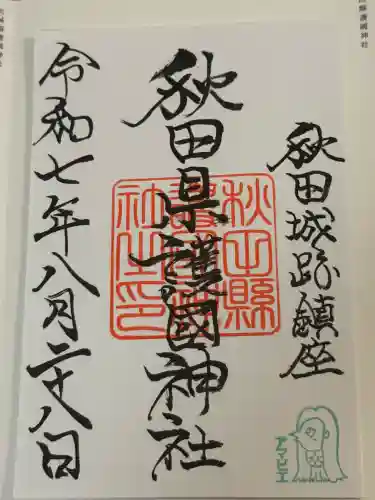 秋田城跡鎮座
秋田県護國神社
令和七年八月二十八日
秋田縣護國神社之印
アマビエ